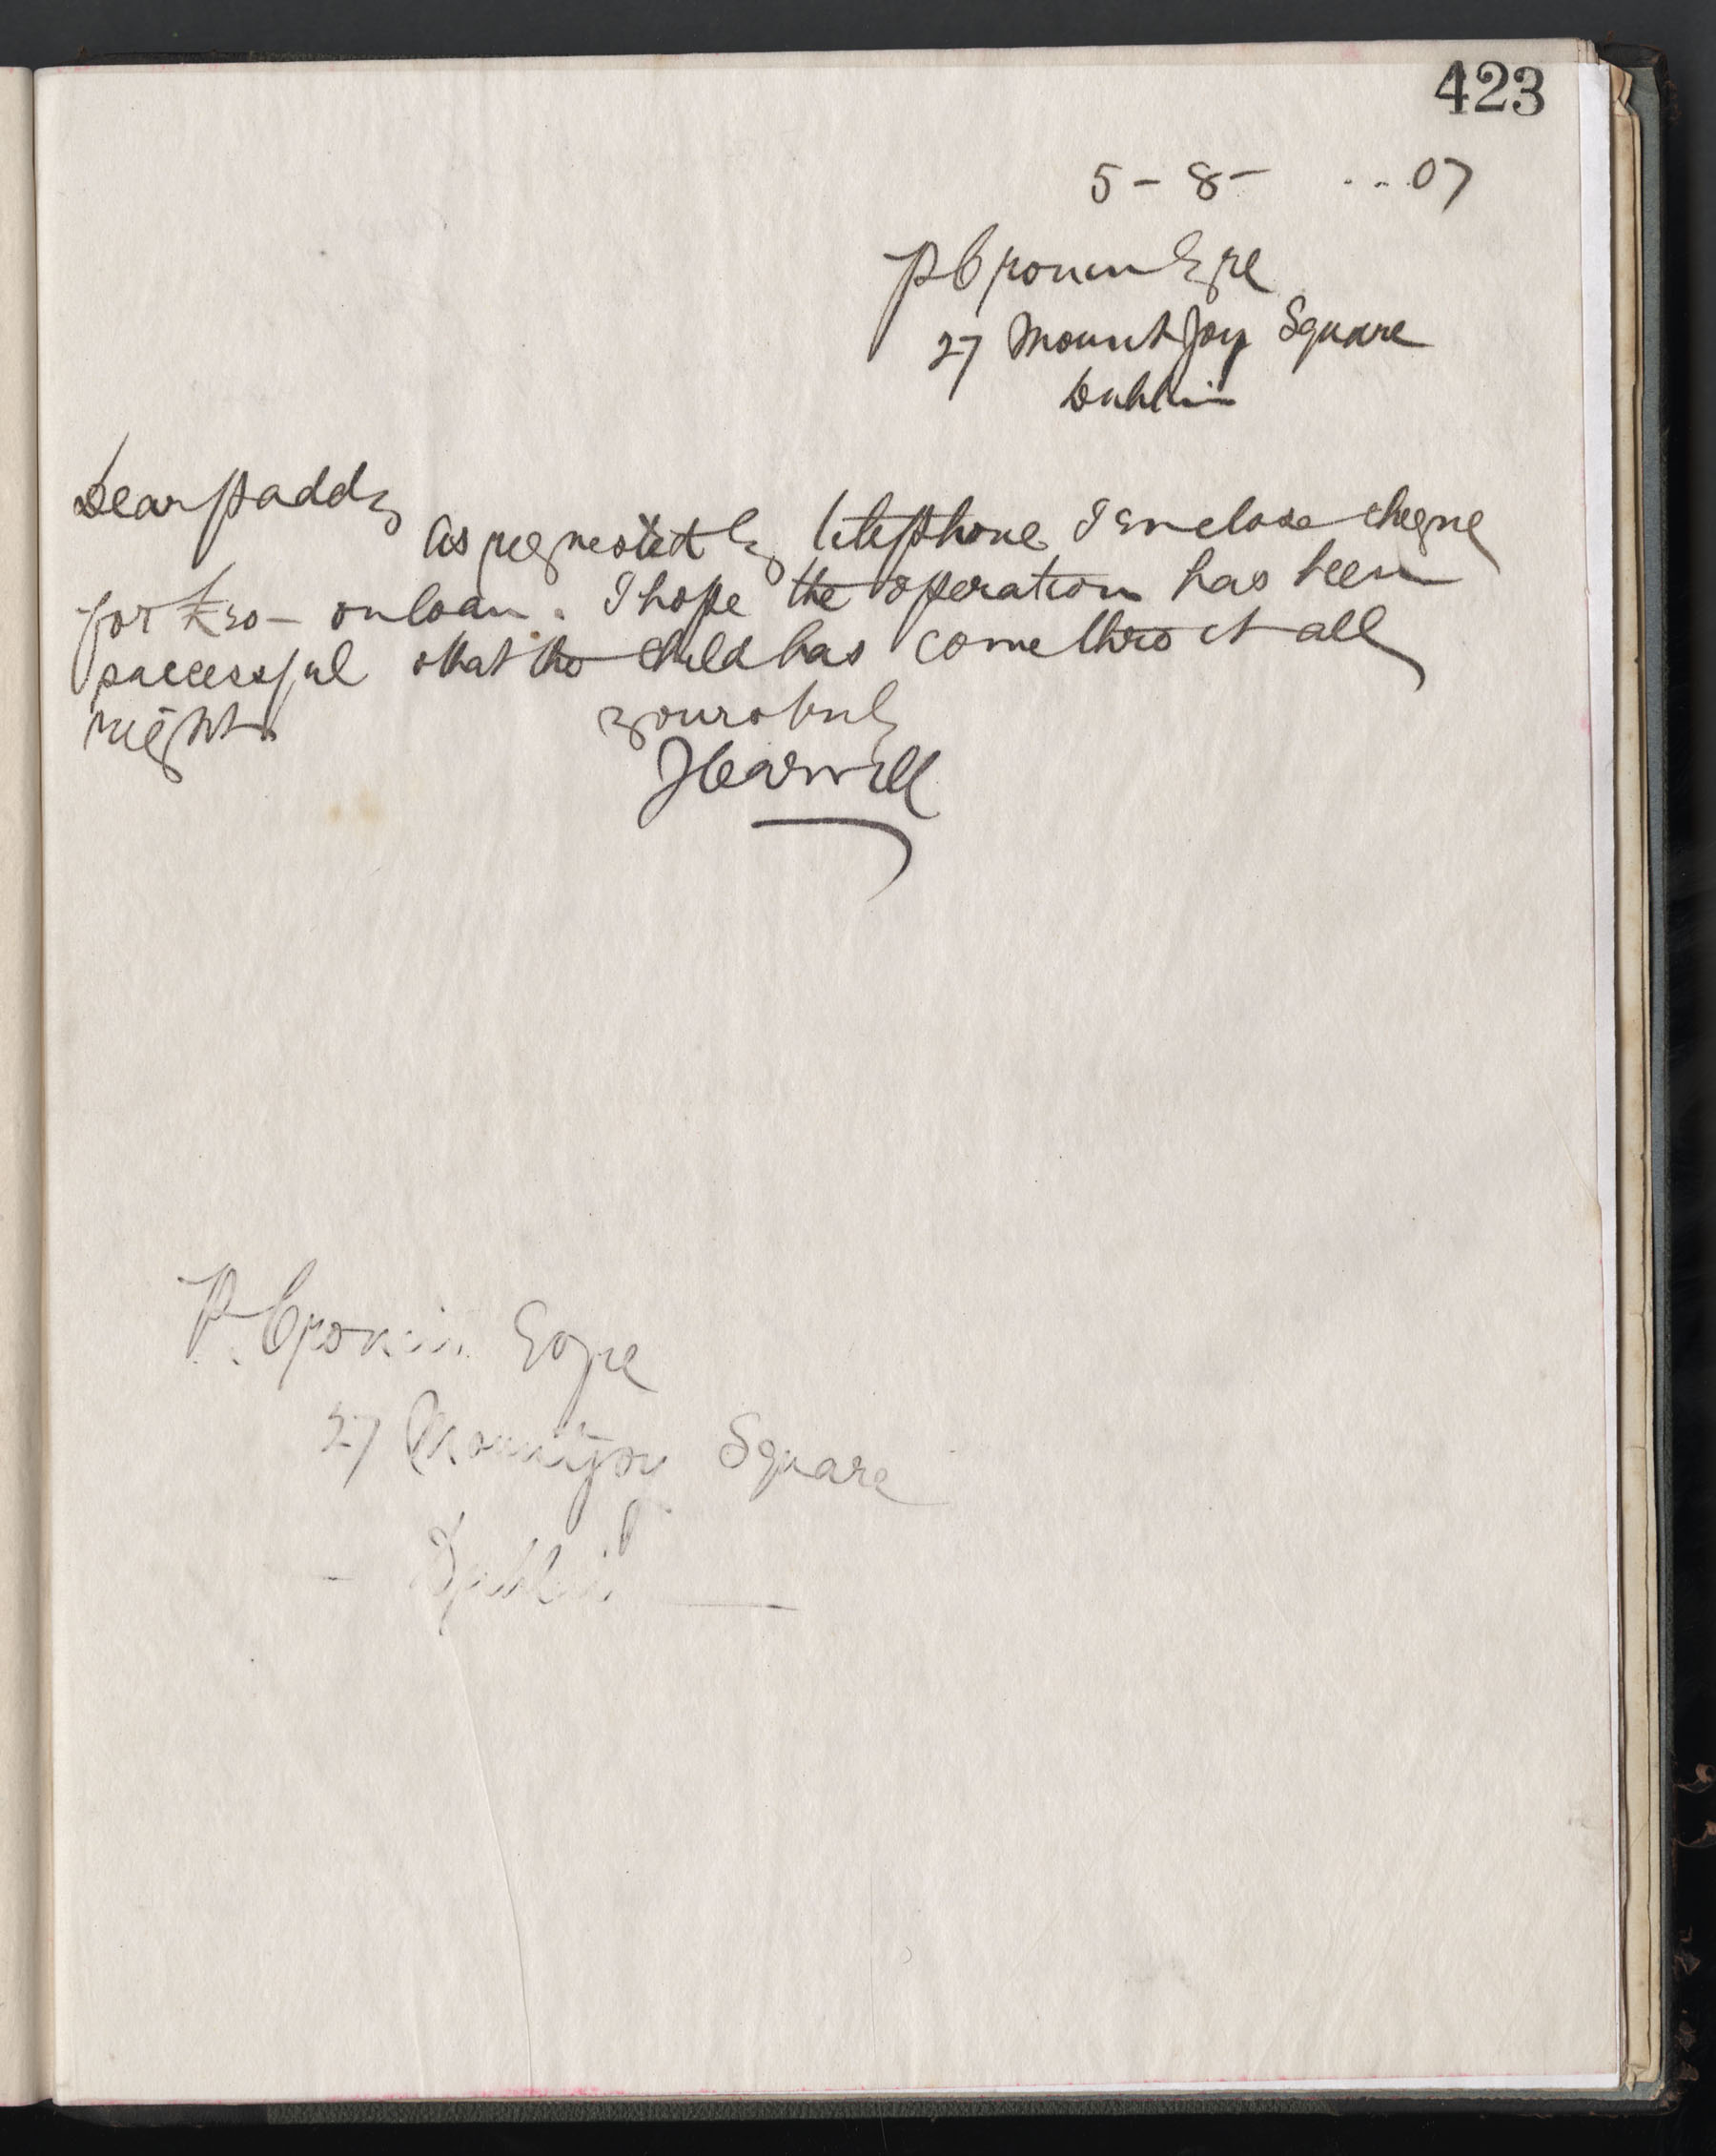 423
5 - 8 - ...07
P Cronin Esqre
27 Mountjoy Square
Dublin
Dear Paddy
As requested by telephone I enclose cheque
for £20 - on loan. I hope the operation has been
successful & that the child has come thro it all
right.
yours truly
J Carvill
P. Cronin Esqre
27 Mountjoy Square
- Dublin